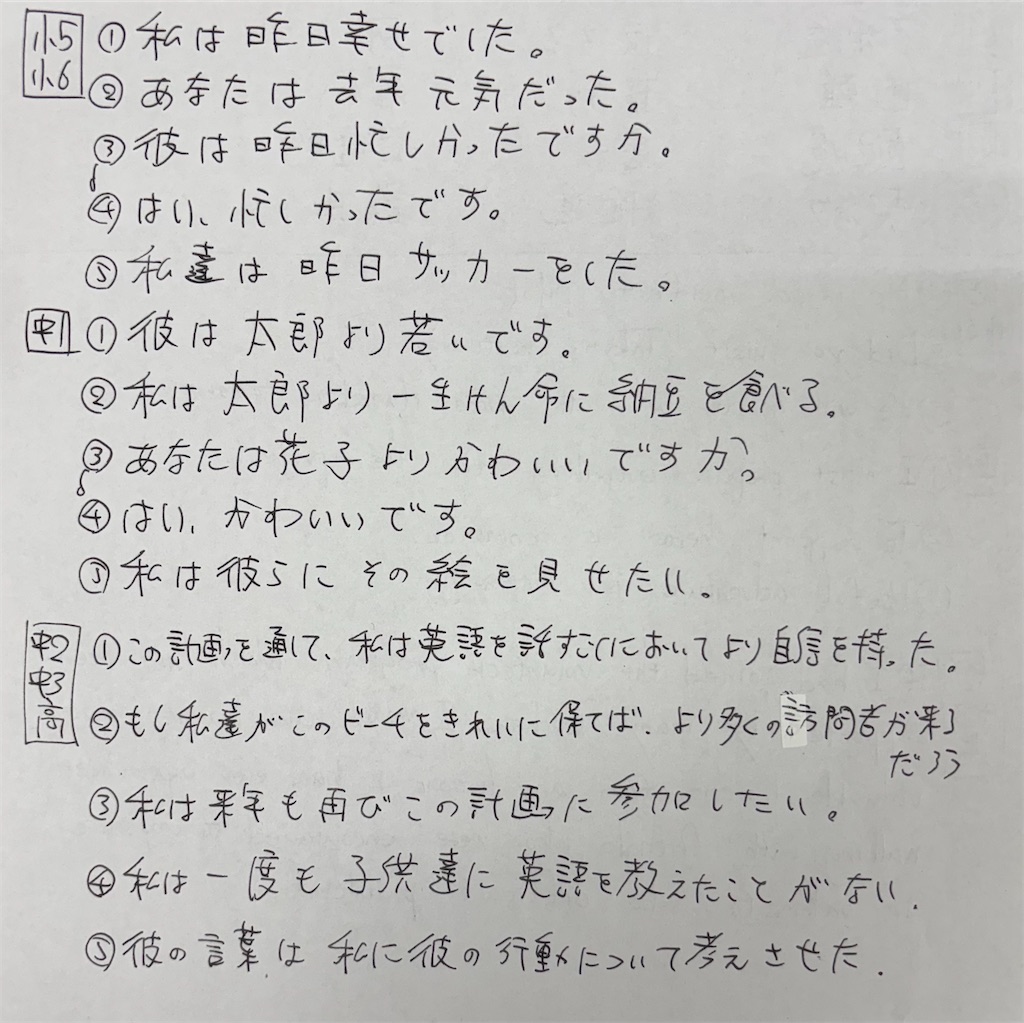 小5 ① 私は昨日幸せでした。
小6 ② あなたは去年元気だった。
③ 彼は昨日忙しかったですか。
④ はい、忙しかったです。
⑤ 私達は昨日サッカーをした。
中1 ① 彼は太郎より若いです。
② 私は太郎より一生けん命に納豆を食べる。
③ あなたは花子よりかわいいですか。
④ はい、かわいいです。
⑤ 私は彼らにその絵を見せたい。
中2 ① この計画を通して、私は英語を話すことにおいてより自信を持った。
中3
高 ② もし私達がこのビーチをきれいに保てば、より多くの訪問者が来る
だろう
③ 私は来年も再びこの計画に参加したい。
④ 私は一度も子供達に英語を教えたことがない.
⑤ 彼の言葉は私に彼の行動について考えさせた.